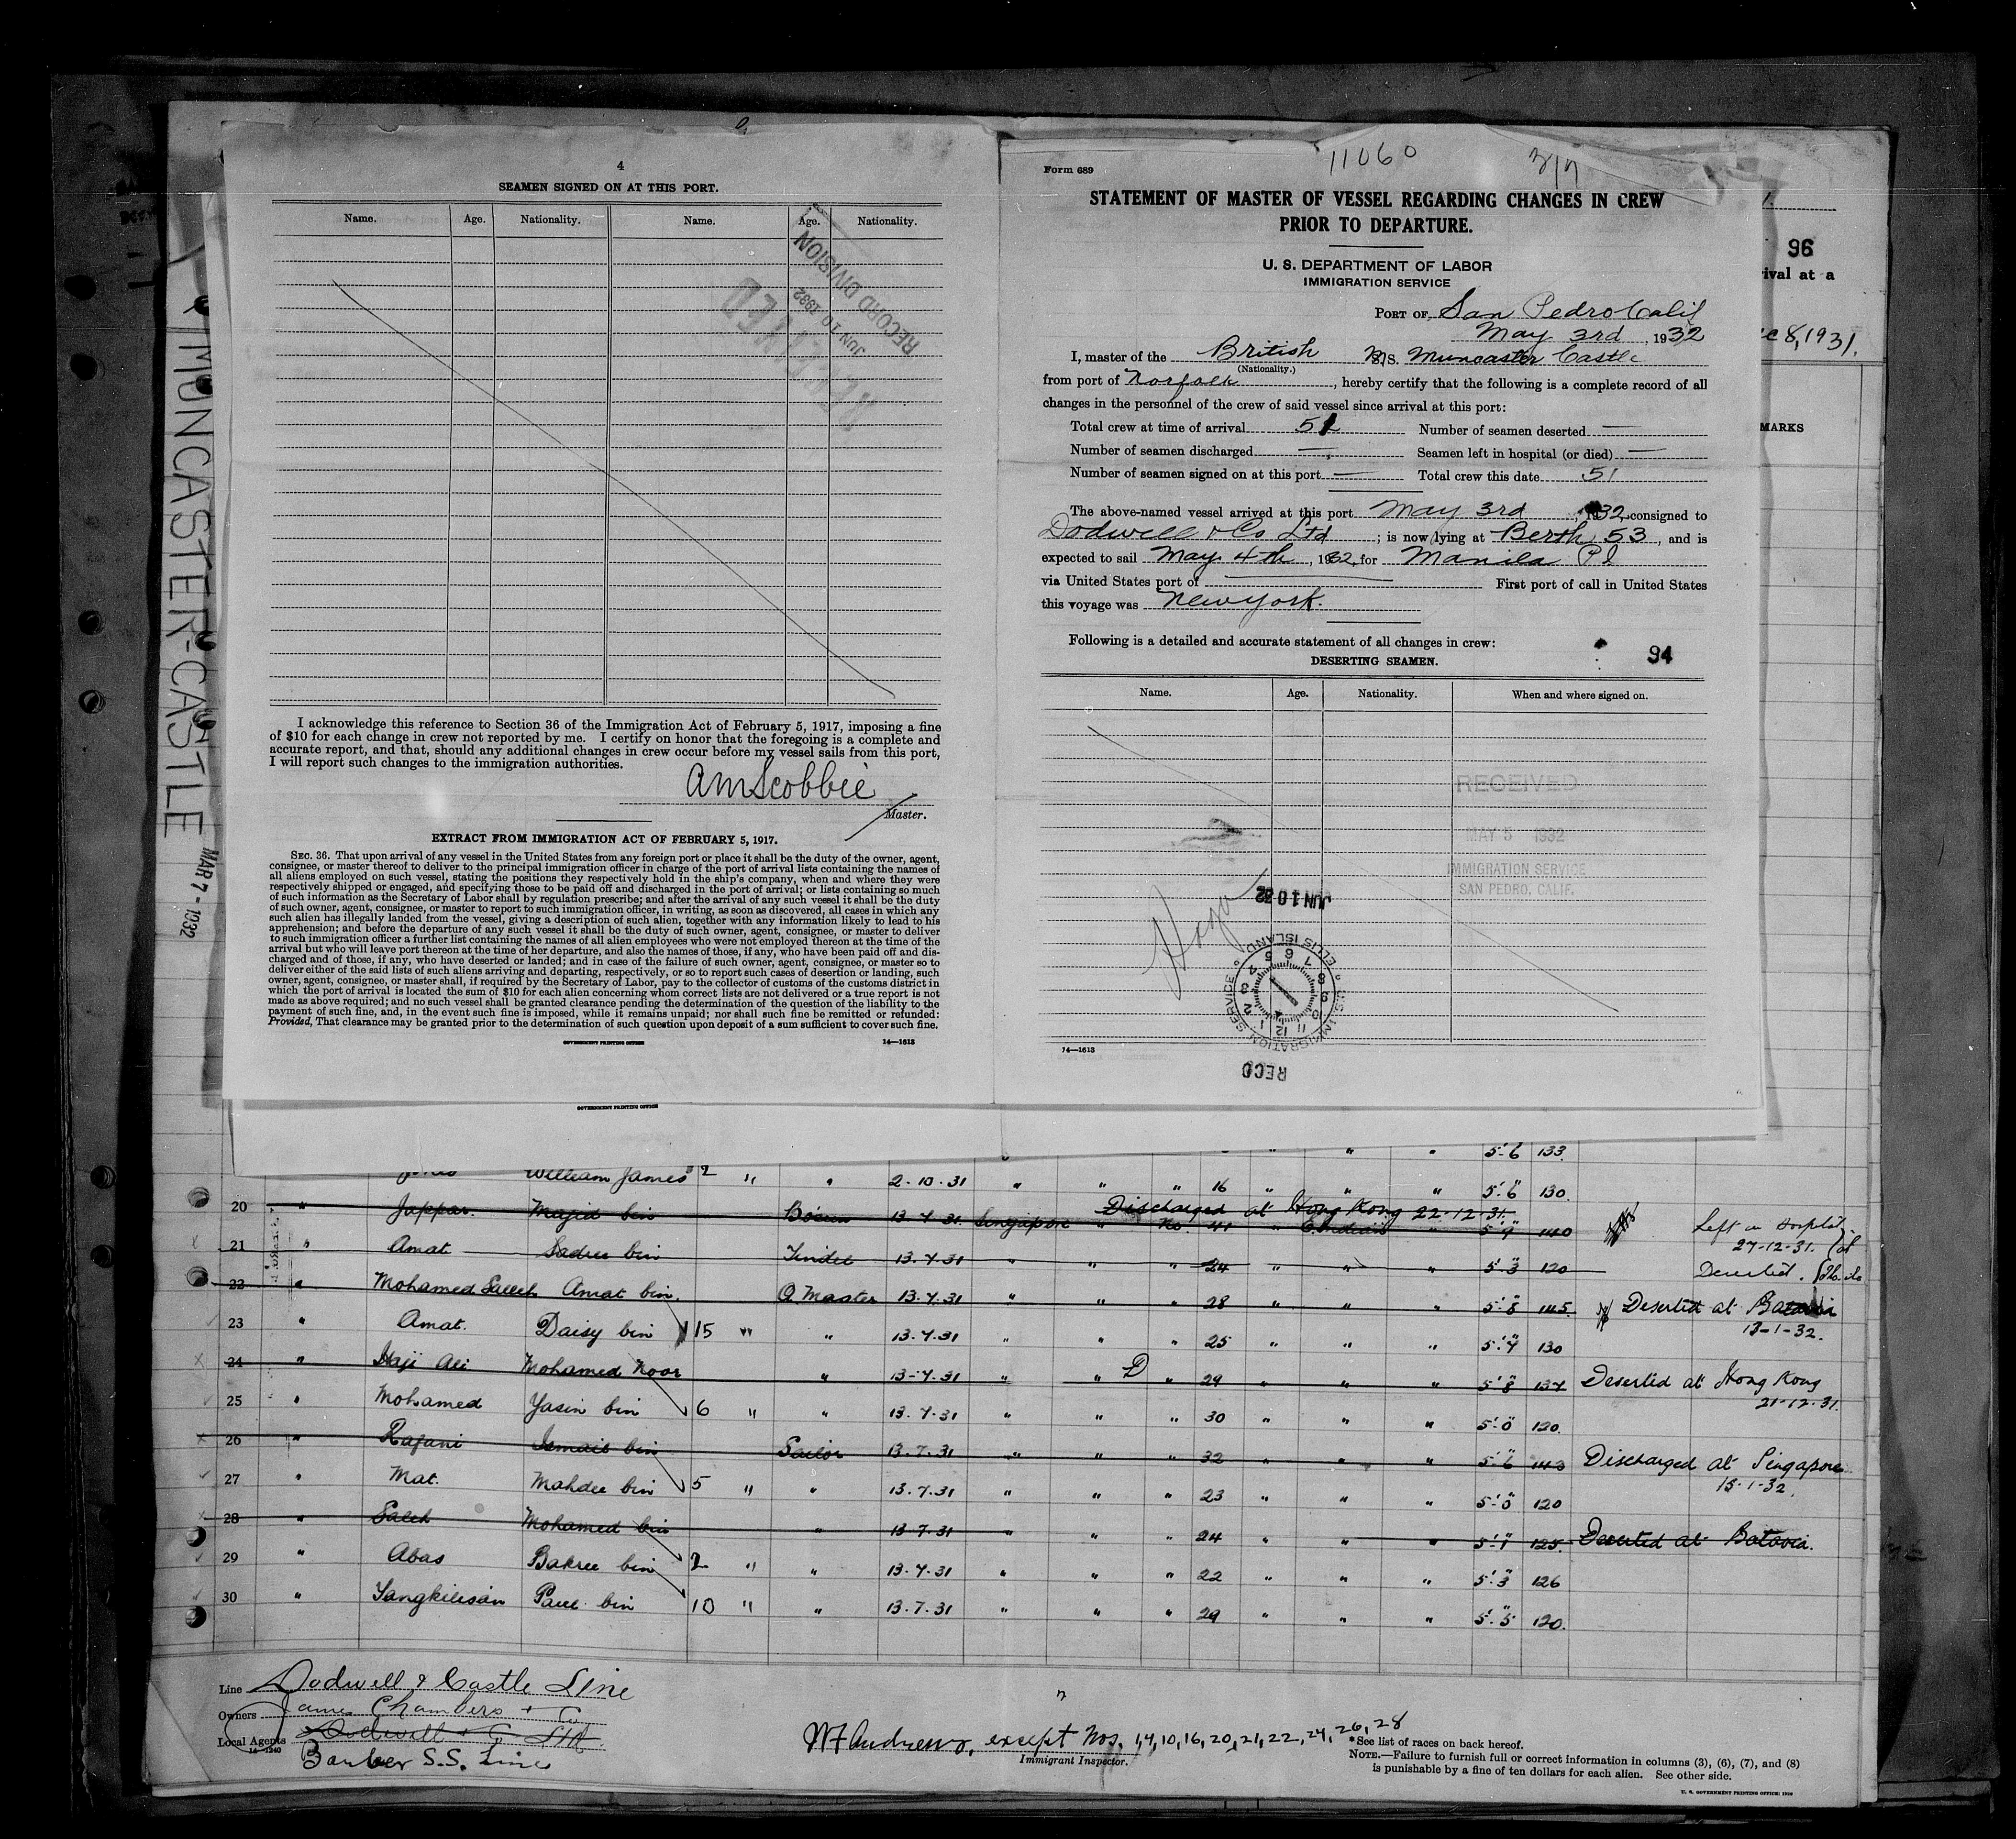 4
SEAMEN SIGNED ON AT THIS PORT.
Name. Age. Nationality. Name. Age. Nationality.
RECEIVED
JUN 10 1932
RECORD DIVISION
I acknowledge this reference to Section 36 of the Immigration Act of February 5, 1917, imposing a fine
of $10 for each change in crew not reported by me. I certify on honor that the foregoing is a complete and
accurate report, and that, should any additional changes in crew occur before my vessel sails from this port,
I will report such changes to the immigration authorities.
AMScobbie
Master.
EXTRACT FROM IMMIGRATION ACT OF FEBRUARY 5, 1917.
SEC. 36. That upon arrival of any vessel in the United States from any foreign port or place it shall be the duty of the owner, agent,
consignee, or master thereof to deliver to the principal immigration officer in charge of the port of arrival lists containing the names of
all aliens employed on such vessel, stating the positions they respectively hold in the ship's company, when and where they were
respectively shipped or engaged, and specifying those to be paid off and discharged in the port of arrival; or lists containing so much
of such information as the Secretary of Labor shall by regulation prescribe; and after the arrival of any such vessel it shall be the duty
of such owner, agent, consignee, or master to report to such immigration officer, in writing, as soon as discovered, all cases in which any
such alien has illegally landed from the vessel, giving a description of such alien, together with any information likely to lead to his
apprehension; and before the departure of any such vessel it shall be the duty of such owner, agent, consignee, or master to deliver
to such immigration officer a further list containing the names of all alien employees who were not employed thereon at the time of the
arrival but who will leave port thereon at the time of her departure, and also the names of those, if any, who have been paid off and dis-
charged and of those, if any, who have deserted or landed; and in case of the failure of such owner, agent, consignee, or master so to
deliver either of the said lists of such aliens arriving and departing, respectively, or so to report such cases of desertion or landing, such
owner, agent, consignee, or master shall, if required by the Secretary of Labor, pay to the collector of customs of the customs district in
which the port of arrival is located the sum of $10 for each alien concerning whom correct lists are not delivered or a true report is not
made as above required; and no such vessel shall be granted clearance pending the determination of the question of the liability to the
payment of such fine, and, in the event such fine is imposed, while it remains unpaid; nor shall such fine be remitted or refunded:
Provided, That clearance may be granted prior to the determination of such question upon deposit of a sum sufficient to cover such fine.
GOVERNMENT PRINTING OFFICE 14—1613
GOVERNMENT PRINTING OFFICE
MUNCASTER-CASTLE MAR 7-1932
11060
Form 689
STATEMENT OF MASTER OF VESSEL REGARDING CHANGES IN CREW
PRIOR TO DEPARTURE.
U. S. DEPARTMENT OF LABOR
IMMIGRATION SERVICE
PORT OF San Pedro Calif
May 3rd, 1932
I, master of the British M/S. Muncaster Castle
(Nationality.)
from port of Norfolk, hereby certify that the following is a complete record of all
changes in the personnel of the crew of said vessel since arrival at this port:
Total crew at time of arrival 51 Number of seamen deserted —
Number of seamen discharged — Seamen left in hospital (or died) —
Number of seamen signed on at this port — Total crew this date 51
The above-named vessel arrived at this port May 3rd, 1932, consigned to
Dodwell & Co Ltd; is now lying at Berth 53, and is
expected to sail May 4th, 1932, for Manila P I
via United States port of — First port of call in United States
this voyage was New York.
Following is a detailed and accurate statement of all changes in crew:
94
DESERTING SEAMEN.
Name. Age. Nationality. When and where signed on.
RECEIVED
MAY 5 1932
IMMIGRATION SERVICE
SAN PEDRO, CALIF.
JUN 10 32
U.S. IMMIGRATION SERVICE ELLIS ISLAND
RECD
14—1613
96
ival at a
c 8, 1931.
MARKS
5-6 133
William James 2 " " 2.10.31 " " " 16 " " " 5'.6" 130.
20 " Jappar. Majid bin Bosun 13.7.31. Singapore " No. 41 " E. Indian " 5'.9" 140
Discharged at Hong Kong 22-12-31.
Left in Hospital
27-12-31.
21 " Amat Sadree bin Tindel 13.7.31 " " " 24 " " " 5'.3" 120 Deserted.
22 " Mohamed Salleh Amat bin. Q. Master 13.7.31 " " " 28 " " " 5'.8" 145. Deserted at Batavia
13-1-32.
23 " Amat. Daisy bin 15 " " 13.7.31 " " " 25 " " " 5'.4" 130
24 " Haji Ali Mohamed Noor " 13-7.31 " " D " 29 " " " 5'.8" 134 Deserted at Hong Kong
21-12-31.
25 " Mohamed Yasin bin 6 " " 13.7.31 " " " 30 " " " 5'.0" 120.
26 " Rafani Ismail bin Sailor 13.7.31 " " " 32 " " " 5'.6" 143 Discharged at Singapore
15.1.32.
27 " Mat. Mahdee bin 5 " " 13.7.31 " " " 23 " " " 5'.0" 120
28 " Saleh Mohamed bin " 13.7.31 " " " 24 " " " 5'.1" 125. Deserted at Batavia.
29 " Abas Bakree bin 2 " " 13.7.31 " " " 22 " " " 5'.3" 126
30 " Sangkilisan Paul bin 10 " " 13.7.31 " " " 29 " " " 5'.5" 120.
Line Dodwell & Castle Line
Owners James Chambers & Co
Local Agents Dodwell & Co Ltd.
14—1240
Barber S.S. Line
WF Andrews, except Nos. 1,4,10,16,20,21,22,24,26,28
Immigrant Inspector.
*See list of races on back hereof.
NOTE.—Failure to furnish full or correct information in columns (3), (6), (7), and (8)
is punishable by a fine of ten dollars for each alien. See other side.
U. S. GOVERNMENT PRINTING OFFICE